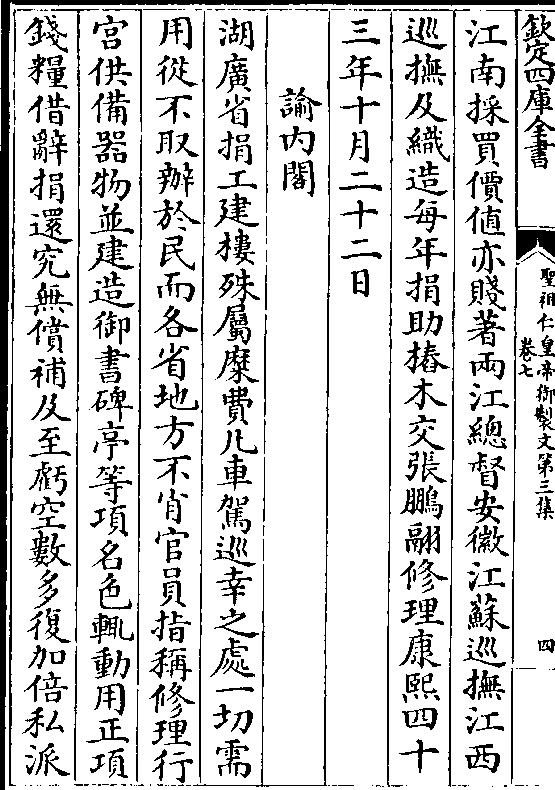 欽定四庫全書
聖祖仁皇帝御製文第三集
卷七
四
江南採買價值亦賤著兩江總督安徽江蘇巡撫江西
巡撫及織造每年捐助樁木交張鵬翮修理康熙四十
三年十月二十二日
諭內閣
湖廣省捐工建樓殊屬糜費凡車駕巡幸之處一切需
用從不取辦於民而各省地方不肖官員指稱修理行
宮供備器物並建造御書碑亭等項名色輒動用正項
錢糧借辭捐還究無償補及至虧空數多復加倍私派